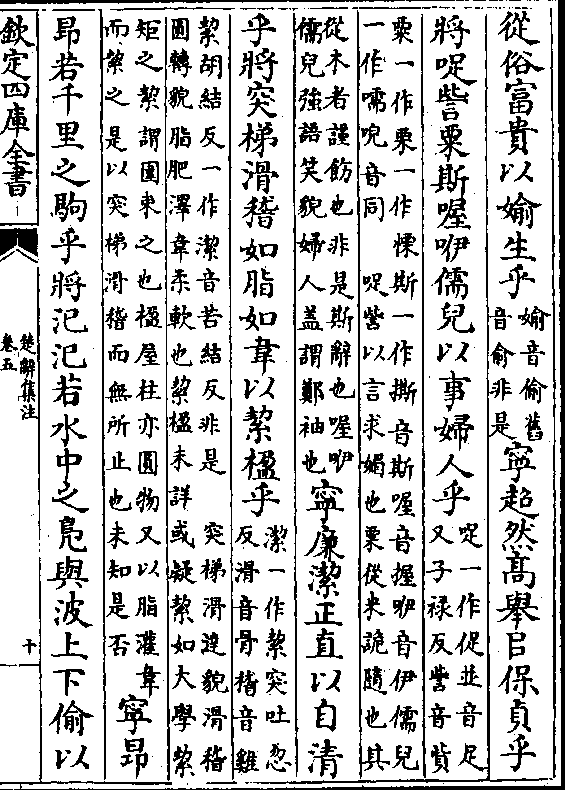 從俗富貴以婾生乎
婾音偷舊
音俞非是
寧超然髙舉㠯保貞乎
將哫訾粟斯喔咿儒兒以事婦人乎
哫一作促並音足
又子禄反訾音貲
粟一作栗一作慄斯一作撕音斯喔音握咿音伊儒兒
一作嚅唲音同 哫訾以言求媚也粟從米詭隨也其
從木者謹飭也非是斯辭也喔咿
儒兒強語笑貌婦人盖謂鄭袖也
寧廉潔正直以自清
乎將突梯滑稽如脂如韋以絜楹乎
潔一作絜突吐忽
反滑音骨稽音雞
絜胡結反一作潔音苦結反非是 突梯滑澾貌滑稽
圓轉貌脂肥澤韋柔軟也絜楹未詳或疑絜如大學絜
矩之絜謂圍束之也楹屋柱亦圓物又以脂灌韋
而絜之是以突梯滑稽而無所止也未知是否
寧昂
昂若千里之駒乎將汜汜若水中之鳬與波上下偷以
欽定四庫全書
楚辭集注
卷五
十